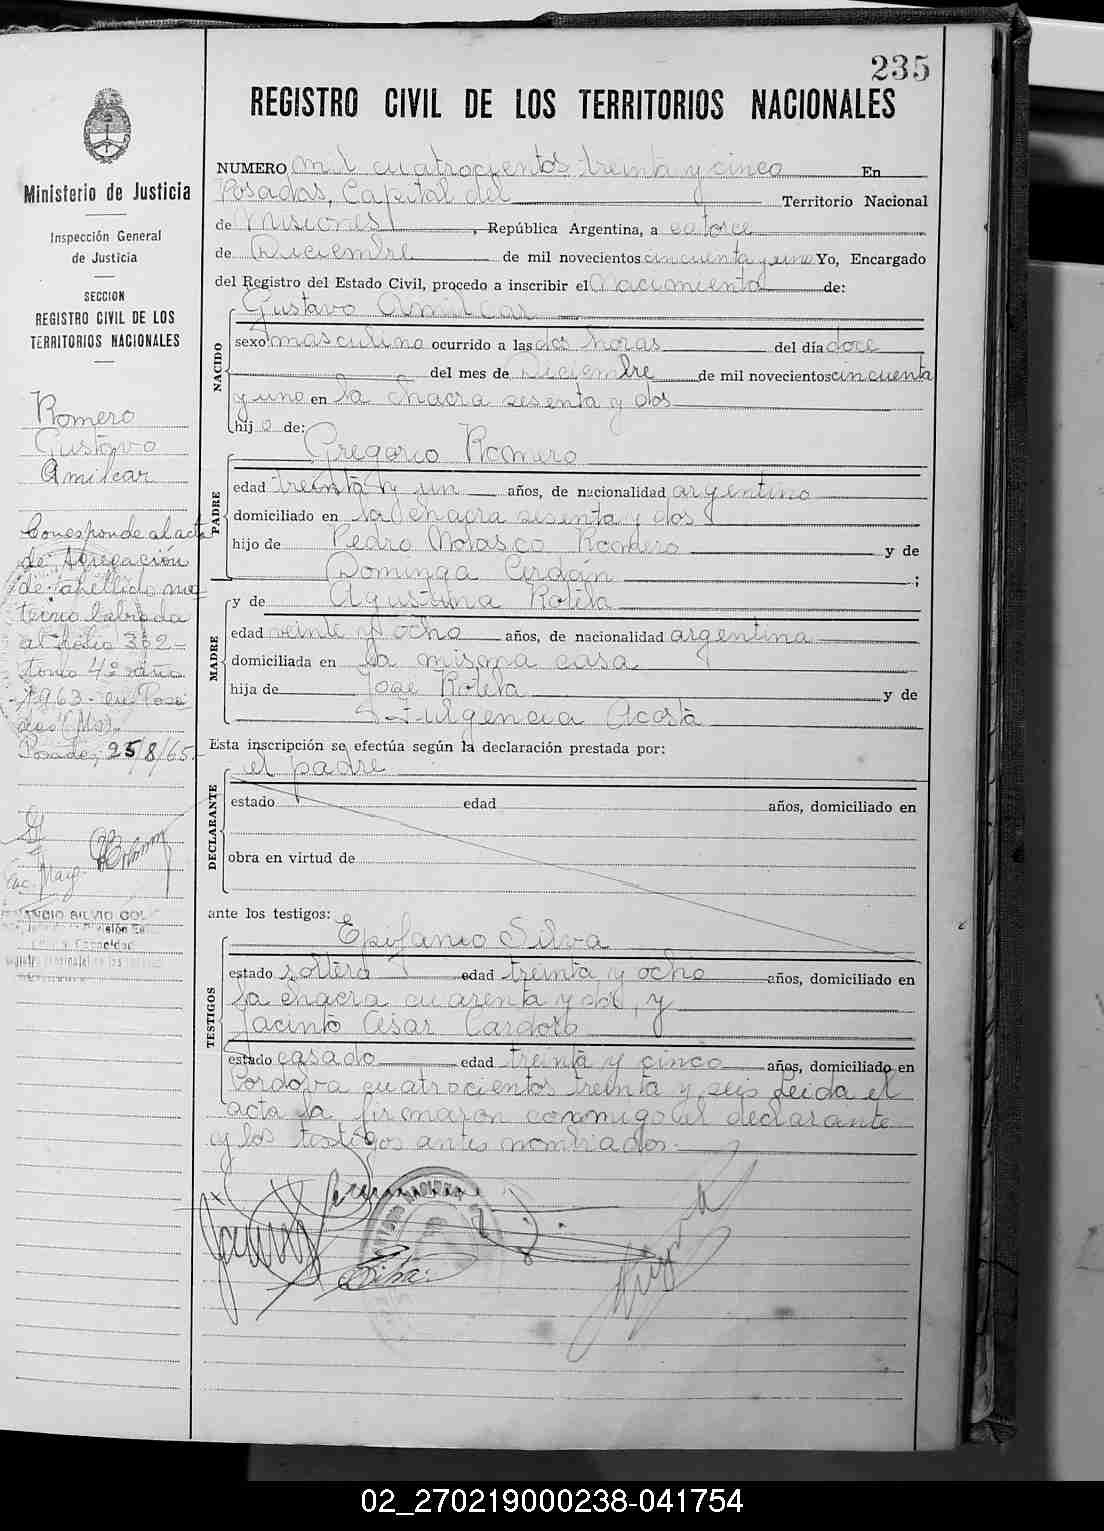 235
REGISTRO CIVIL DE LOS TERRITORIOS NACIONALES
Ministerio de Justicia
Inspección General
de Justicia
SECCION
REGISTRO CIVIL DE LOS
TERRITORIOS NACIONALES
Romero
Gustavo
Amilcar
Corresponde al acta
de Agregación
de apellido ma-
terno labrada
al folio 352=
tomo 4º año
1963- en Posa
das (Ms).
Posadas, 25/8/65-
NUMERO mil cuatrocientos treinta y cinco En
Posadas, Capital del Territorio Nacional
de Misiones, República Argentina, a catorce
de Diciembre de mil novecientos cincuenta y uno Yo, Encargado
del Registro del Estado Civil, procedo a inscribir el Nacimiento de:
NACIDO
Gustavo Amilcar
sexo masculino ocurrido a las dos horas del día doce
del mes de Diciembre de mil novecientos cincuenta
y uno en la chacra sesenta y dos
hijo de:
PADRE
Gregorio Romero
edad treinta y un años, de nacionalidad argentino
domiciliado en la chacra sesenta y dos
hijo de Pedro Nolasco Romero y de
Dominga Cerdán ;
MADRE
y de Agustina Rotela
edad veinte y ocho años, de nacionalidad argentina
domiciliada en la misma casa
hija de José Rotela y de
Fulgencia Acosta
Esta inscripción se efectúa según la declaración prestada por:
DECLARANTE
el padre
estado edad años, domiciliado en
obra en virtud de
ante los testigos:
TESTIGOS
Epifanio Silva
estado soltero edad treinta y ocho años, domiciliado en
la chacra cuarenta y dos, y
Jacinto César Cardozo
estado casado edad treinta y cinco años, domiciliado en
Cordova cuatrocientos treinta y seis Leida el
acta la firmaron conmigo el declarante
y los testigos antes nombrados.
02_270219000238-041754